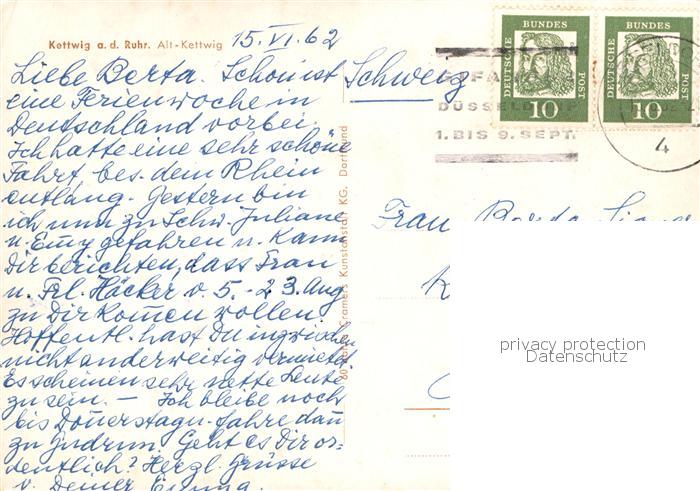 Kettwig a. d. Ruhr. Alt-Kettwig
15. VI. 62
Liebe Berta. Schon ist
eine Ferienwoche in
Deutschland vorbei.
Ich hatte eine sehr schöne
Fahrt bes. dem Rhein
entlang. Gestern bin
ich nun zu Schw. Juliane
u. Emmy gefahren u. kann
Dir berichten, dass Frau
u. Frl. Häcker v. 5. - 23. Aug.
zu Dir kommen wollen.
Hoffentl. hast Du inzwischen
nicht anderweitig vermietet.
Es scheinen sehr nette Leute
zu sein. — Ich bleibe noch
bis Donnerstag u. fahre dann
zu Gudrun. Geht es Dir or-
dentlich? Herzl. Grüsse
v. Deiner
Cramers Kunstanstalt KG. Dortmund
Schweiz
DEUTSCHE BUNDES POST
10
DEUTSCHE BUNDES POST
10
DÜSSELDORF
1. BIS 9. SEPT.
4
Frau
privacy protection
Datenschutz